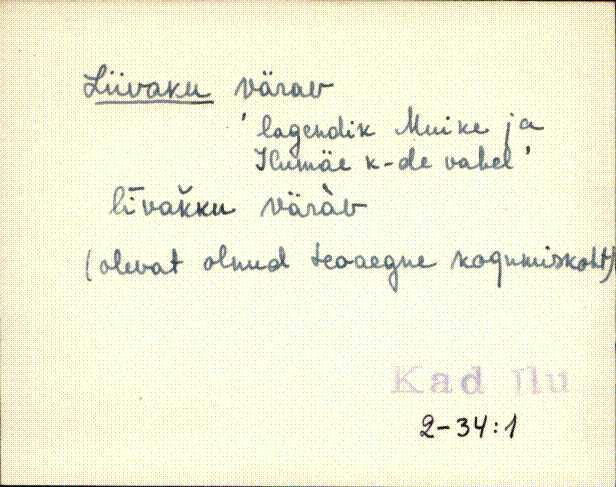 Liivaku värav
'lagendik Muike ja
Ilumäe k-de vahel'
līvak̆ku väràv
(olevat olnud teoaegne kogumiskoht)
Kad Ilu
2-34:1